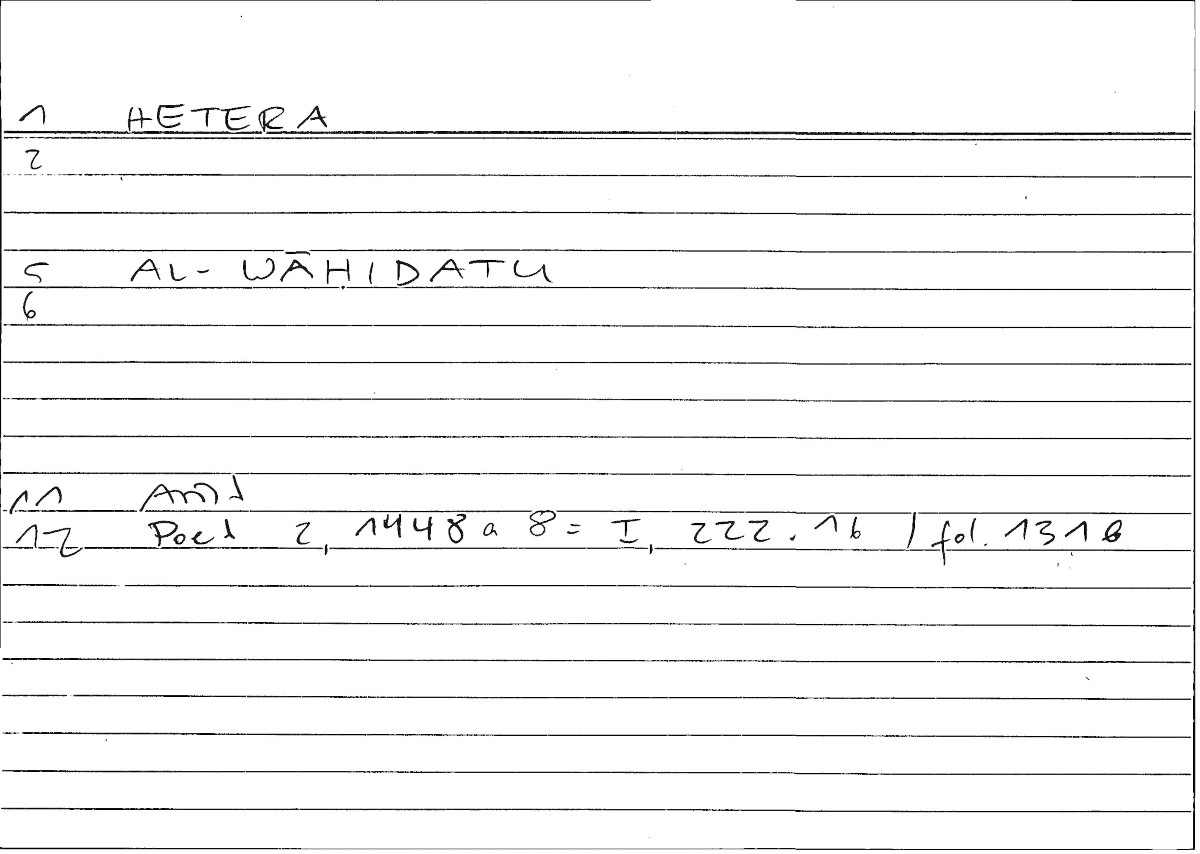 1 HETERA
2
5 AL-WĀḤIDATU
6
11 Arist
12 Poet 2, 1448 a 8 = I, 222.16 / fol. 131b